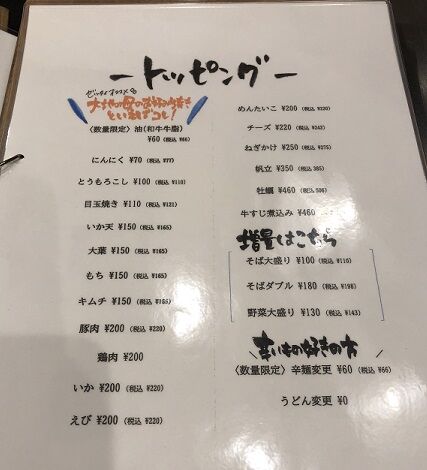 ートッピングー
ぜったいオススメ
といえばコレ!
〈数量限定〉油(和牛牛脂)
¥60(税込 ¥66)
にんにく ¥70(税込 ¥77)
とうもろこし ¥100(税込 ¥110)
目玉焼き ¥110(税込 ¥121)
いか天 ¥150(税込 ¥165)
大葉 ¥150(税込 ¥165)
もち ¥150(税込 ¥165)
キムチ ¥150(税込 ¥165)
豚肉 ¥200(税込 ¥220)
鶏肉 ¥200
いか ¥200(税込 ¥220)
えび ¥200(税込 ¥220)
めんたいこ ¥200(税込 ¥220)
チーズ ¥220(税込 ¥242)
ねぎかけ ¥250(税込 ¥275)
帆立 ¥350(税込 385)
牡蠣 ¥460(税込 506)
牛すじ煮込み ¥460(税込
増量はこちら
そば大盛り ¥100(税込 ¥110)
そばダブル ¥180(税込 ¥198)
野菜大盛り ¥130(税込 ¥143)
辛いもの好きの方
〈数量限定〉辛麺変更 ¥60(税込 ¥66)
うどん変更 ¥0